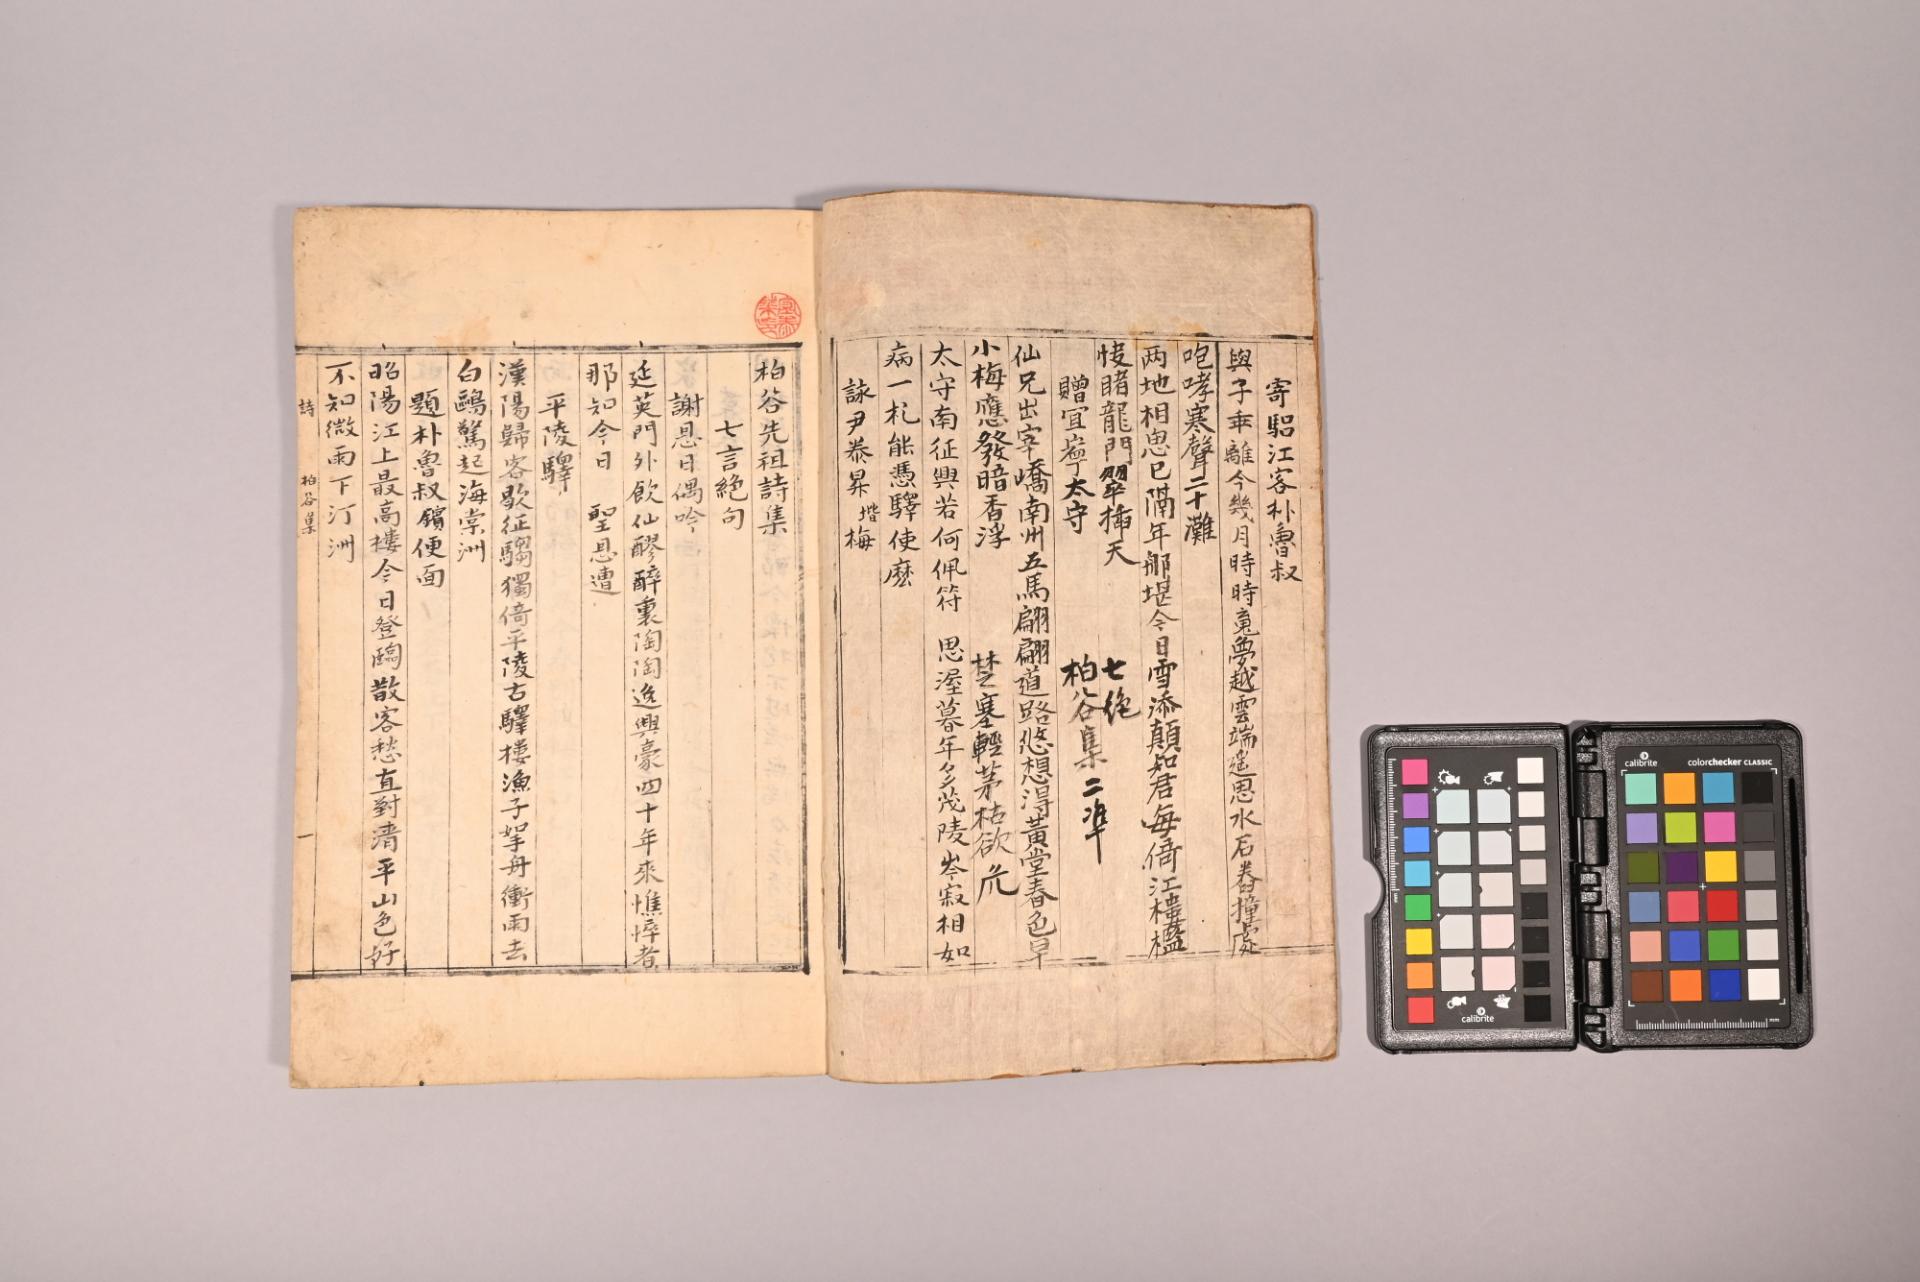 寄駋江客朴魯叔
與子乖離今幾月時時䰟夢越雲端遥思水石舂撞處
咆哮寒聲二十灘
两地相思已隔年那堪今日雪添顛知君每倚江樓檻
悽睹龍門翠揷天
七絶
贈宜寧太守
柏谷集二準
仙兄出宰嶠南州五馬翩翩道路悠想得黃堂春色早
小梅應發暗香浮
楚塞輕茅枯欲危
太守南征興若何佩符
思渥暮年多茂陵岑寂相如
病一札能憑驛使麽
詠尹泰昇堦梅
柏谷先祖詩集
七言絶句
謝恩日偶吟
延英門外飮仙醪醉裏陶陶逸興豪四十年來憔悴者
那知今日 聖恩遭
平陵驛
漢陽歸客歇征驂獨倚平陵古驛樓漁子挐舟衝雨去
白鷗驚起海棠洲
題朴魯叔鑌便面
昭陽江上最高樓今日登臨散客愁直對淸平山色好
不知微雨下汀洲
詩
柏谷集
一
calibrite
calibrite
colorchecker CLASSIC
mm